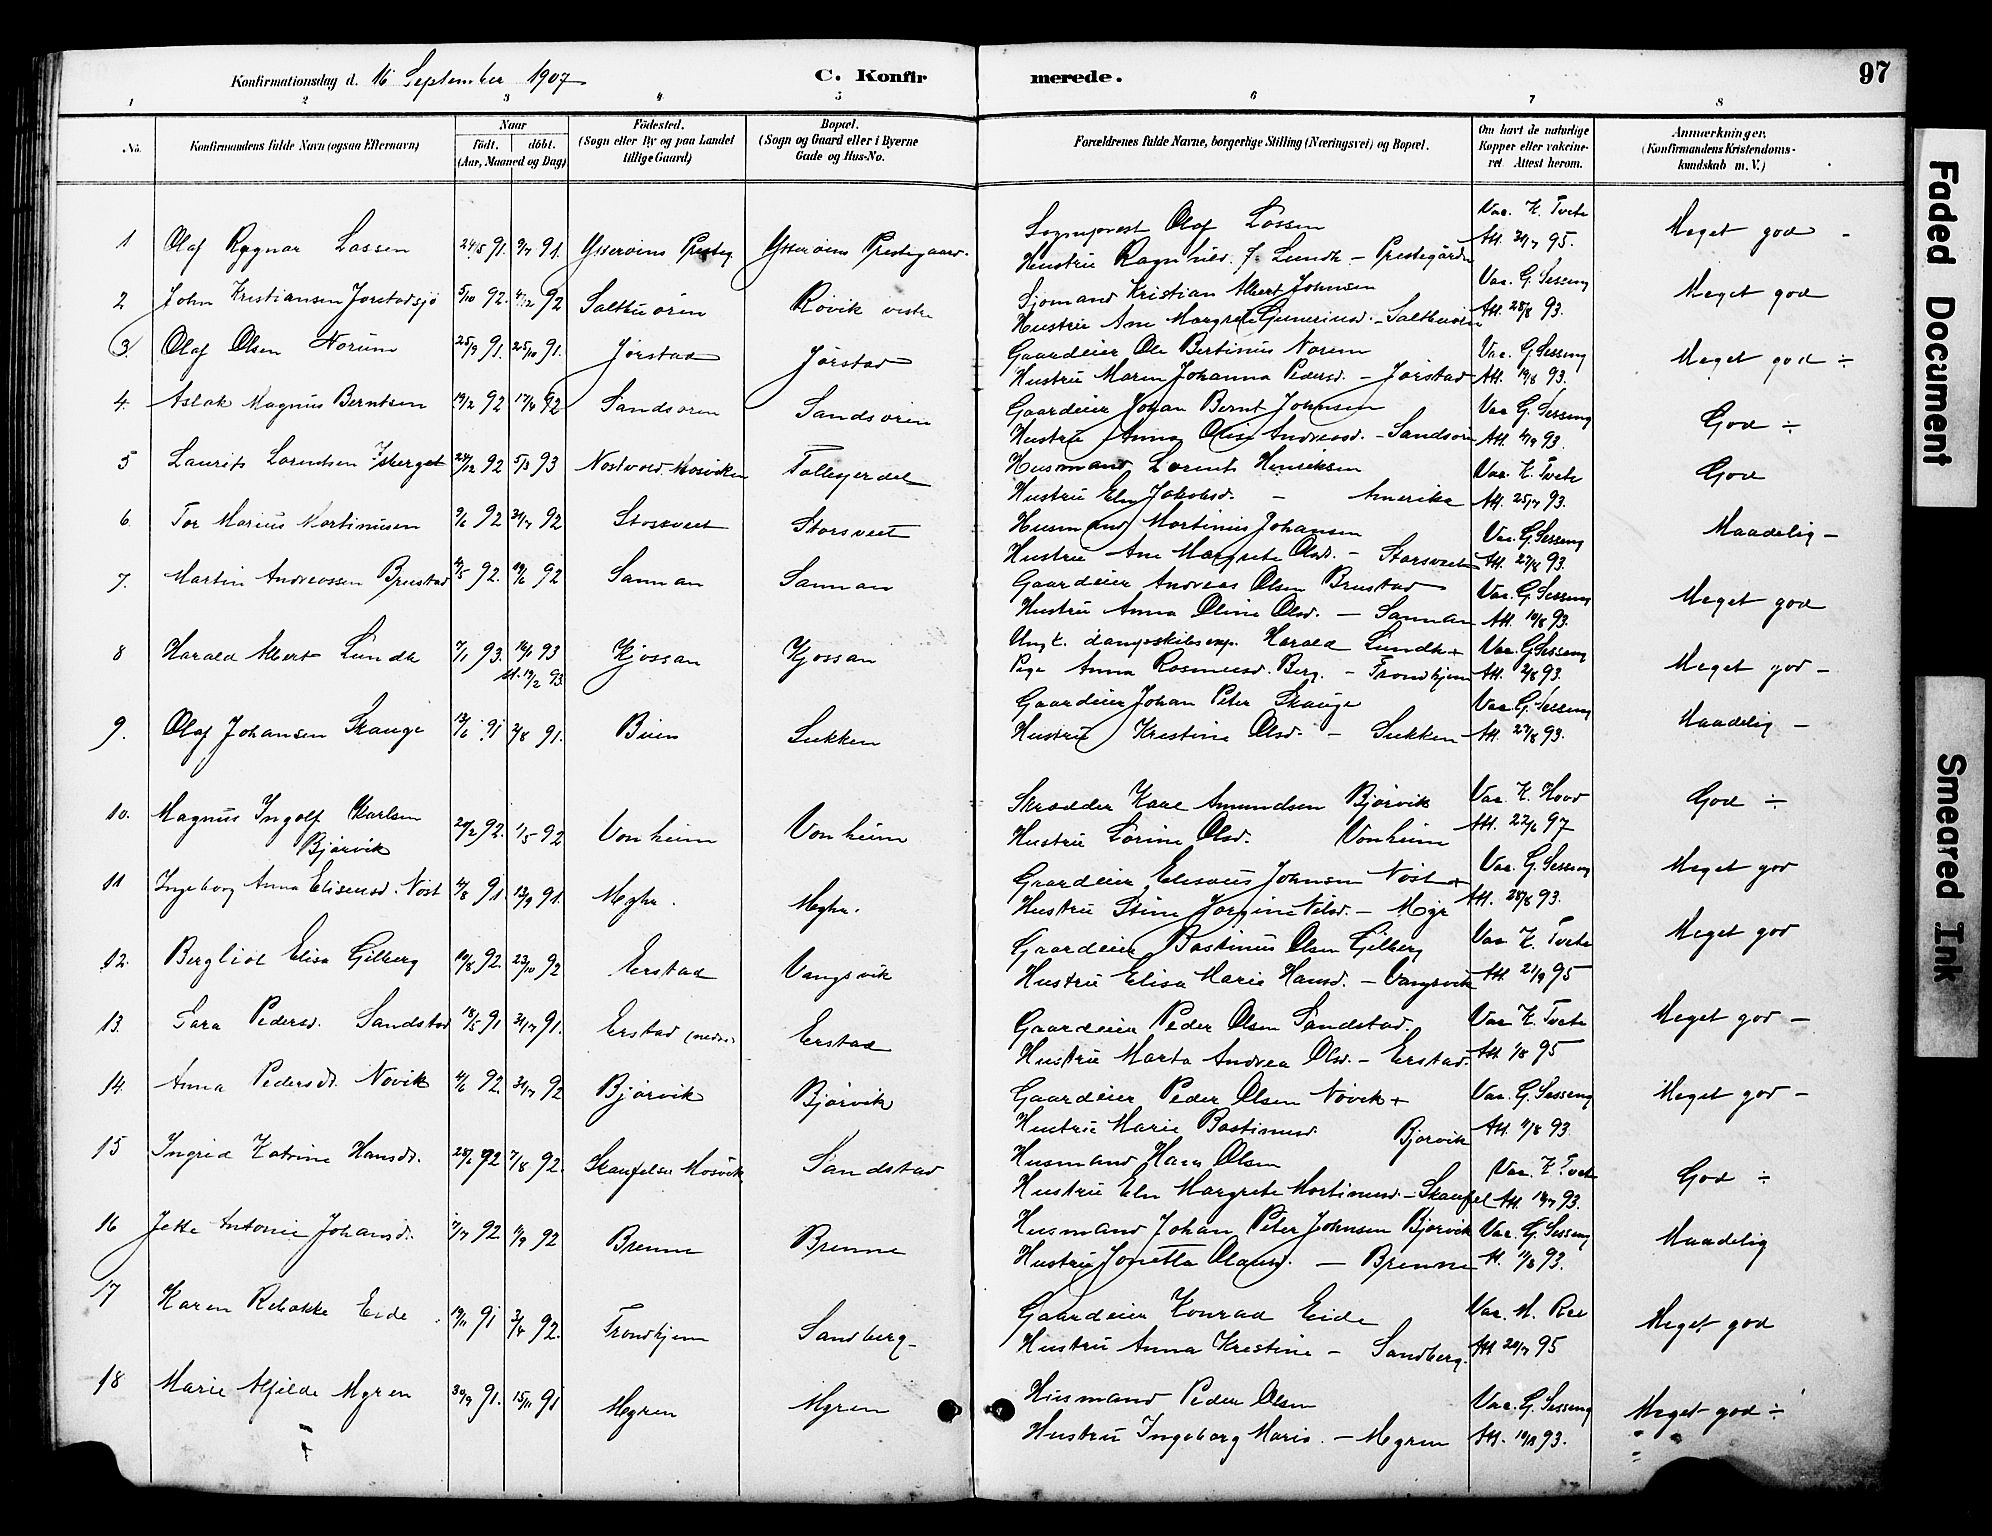 Konfirmationsdag d. 16 September 1907
C. Konfirmerede.
97
1 2 3 4 5 6 7 8
No. Konfirmandens fulde Navn (ogsaa Efternavn) Naar födt. döbt. (Aar, Maaned og Dag) Födested. (Sogn eller By og paa Landet tillige Gaard) Bopæl. (Sogn og Gaard eller i Byerne Gade og Hus-No. Forældrenes fulde Navne, borgerlige Stilling (Næringsvei) og Bopæl. Om havt de naturlige Kopper eller vakcineret Attest herom. Anmærkninger. (Konfirmandens Kristendomskundskab m. V.)
1 Olaf Ragnar Lossen 24/5 91. 9/7 91. Ytterøens Presteg. Ytterøens Prestegaard. Sogneprest Olaf Lossen Vac. K. Tvete Meget god -
Hustru Ragnhild f. Lundh - Prestegården Att. 31/7 95.
2 John Kristiansen Jorstadsjø 5/10 92. 4/12 92 Salthuøren Røvik vestre Sjømand Kristian Albert Johnsen Vac. G. Sesseng Meget god
Hustru Ane Margrete Guneriusd. - Salthuøren Att. 28/8 93.
3. Olaf Olsen Norum 25/9 91. 25/10 91. Jørstad Jørstad Gaardeier Ole Bertinus Norem Vac. G. Sesseng Meget god ÷
Hustru Maren Johanna Pedersd. - Jørstad Att. 19/8 93.
4. Aslak Magnus Berntsen 19/2 92 17/4 92 Sandsøren Sandsøren Gaardeier Johan Bernt Johnsen Vac G. Sesseng God ÷
Hustru Anna Olise Andreasd. - Sandsøren Att. 4/9 93.
5 Laurits Lorentsen Isberget 28/12 92 5/3 93 Nostvold Mosviken Tollerdal Husmand Lorents Henriksen Vac K. Tvete God
Hustru Elen Jakobsd. - Amerika Att. 25/7 93.
6 Tor Marius Martinusen 9/6 92 31/7 92 Storsveet Storsveet Husmand Martinus Johansen Vac. G. Sesseng Maadelig -
Hustru Ane Margrete Olsd. - Storsveet Att. 27/8 93.
7. Martin Andreassen Brustad 4/5 92. 19/6 92 Sannan Sannan Gaardeier Andreas Olsen Brustad Vac. G. Sesseng Meget god
Hustru Anna Oline Olsd. - Sannan Att. 19/8 93.
8 Harald Albert Lundh 7/1 93. 14/1 93 Kjossan Kjossan Ungk. dampskibsexp. Harald Lundh + Vac. G. Sesseng Meget god -
st. 19/2 93. Pige Anna Rasmusd. Berg. - Trondhjem Att. 2/8 93.
9. Olaf Johansen Skauge 13/6 91 2/8 91. Buen Lukken Gaardeier Johan Peter Skauge Vac. G. Sesseng Maadelig -
Hustru Kristine Olsd. - Lukken Att. 27/8 93.
10. Magnus Ingolf Karlsen Bjørvik 20/2 92. 1/5 92 Vonheim Vonheim Skrædder Karl Amundsen Bjørvik Vac K. Hovd God ÷
Hustru Lorine Olsd. Vonheim Att. 22/6 97
11 Ingeborg Anna Eliseusd. Nøst 4/8 91. 13/9 91. Myhr. Myhr. Gaardeier Eliseus Johnsen Nøst + Vac. G. Sesseng Meget god
Hustru Stine Jørgine Nilsd. - Myr Att. 28/8 93.
12. Bergliot Elisa Gilberg 19/8 92. 23/10 92 Erstad Vangsvik Gaardeier Bastinus Olsen Gilberg Vac K. Tvete Meget god
Hustru Elisa Marie Hansd. - Vangsvik Att. 21/9 95
13. Sara Pedersd. Sandstad 18/5 91 31/7 91. Erstad (nedre) Erstad Gaardeier Peder Olsen Sandstad. Vac K. Tvete Meget god -
Hustru Marta Andrea Olsd. - Erstad. Att 1/8 95
14 Anna Pedersdt. Nøvik 4/6 92. 31/7 92 Bjørvik Bjørvik Gaardeier Peder Olsen Nøvik + Vac. G. Sesseng Meget god -
Hustru Marie Bastinusd. Bjørvik Att. 11/8 93.
15 Ingrid Katrine Hansdt. 28/6 92 7/8 92. Skaufelse Mosvik Sandstad Husmand Hans Olsen Vac. K. Tvete God ÷
Hustru Eln Margrete Martinusd. - Skaufel Att. 18/7 93.
16 Jette Antonie Johansd. 17/7 92. 11/9 92 Brenne Brenne Husmand Johan Peter Johnsen Bjørvik Vac. G. Sesseng Maadelig
Hustru Jonetta Olausd. - Brenne Att. 11/8 93.
17 Karen Rebakke Eide 19/11 91 3/4 92. Trondhjem Sandberg Gaardeier Konrad Eide Vac. M. Ree Meget god
Hustru Anna Kristine - Sandberg. Att. 20/7 95
18 Marie Alfilde Myren 30/9 91. 15/11 91 Myren Myren Husmand Peder Olsen Vac. G. Sesseng Meget god ÷
Hustru Ingeborg Marie. - Myren Att. 19/8 93.
Faded Document
Smeared Ink